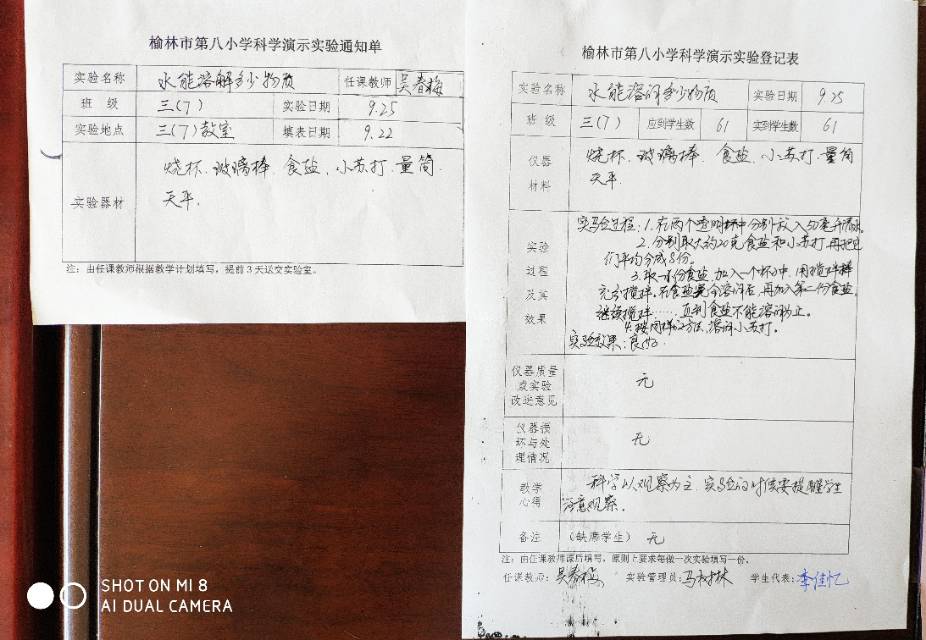 榆林市第八小学科学演示实验通知单
实验名称 水能溶解多少物质 任课教师 吴春梅
班 级 三(7) 实验日期 9.25
实验地点 三(7)教室 填表日期 9.22
实验器材 烧杯、玻璃棒、食盐、小苏打、量筒、
天平、
注：由任课教师根据教学计划填写，提前3天送交实验室。
榆林市第八小学科学演示实验登记表
实验名称 水能溶解多少物质 实验日期 9.25
班 级 三(7) 应到学生数 61 实到学生数 61
仪器 烧杯、玻璃棒、食盐、小苏打、量筒
材料 天平、
实验过程：1.在两个透明杯中分别放入50毫升清水。
实验 2.分别取大约20克食盐和小苏打，再把它
过程 们平均分成8份。
3.取一份食盐，加入一个杯中，用搅拌棒
及其 充分搅拌，在食盐完全溶解后，再加入第二份食盐，
效果 继续搅拌……直到食盐不能溶解为止。
4.按同样的方法，溶解小苏打。
实验效果：良好.
仪器质量
或实验 无
改进意见
仪器损
坏与处 无
理情况
教学 科学以观察为主，实验的时候要提醒学生
心得 注意观察。
备注 (缺席学生) 无
注：由任课教师课后填写，原则上要求每做一次实验填写一份。
任课教师：吴春梅 实验管理员：马树林 学生代表：李佳忆
SHOT ON MI 8
AI DUAL CAMERA